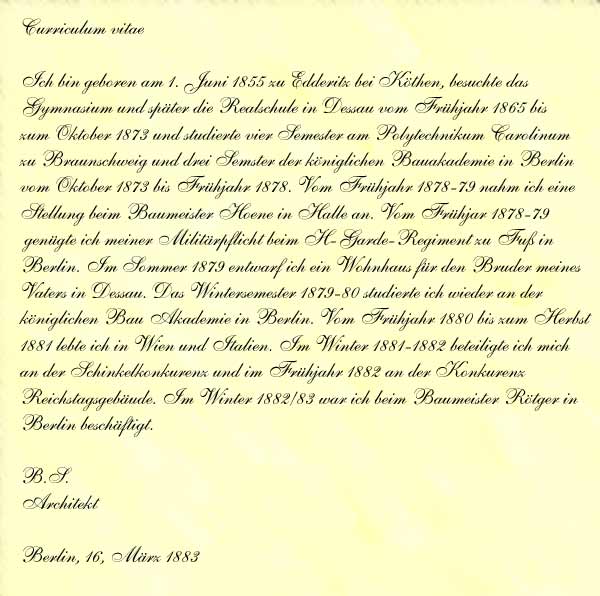 Curriculum vitae
Ich bin geboren am 1. Juni 1855 zu Edderitz bei Köthen, besuchte das
Gymnasium und später die Realschule in Dessau vom Frühjahr 1865 bis
zum Oktober 1873 und studierte vier Semester am Polytechnikum Carolinum
zu Braunschweig und drei Semster der königlichen Bauakademie in Berlin
vom Oktober 1873 bis Frühjahr 1878. Vom Frühjahr 1878-79 nahm ich eine
Stellung beim Baumeister Hoene in Halle an. Vom Frühjar 1878-79
genügte ich meiner Militärpflicht beim H-Garde-Regiment zu Fuß in
Berlin. Im Sommer 1879 entwarf ich ein Wohnhaus für den Bruder meines
Vaters in Dessau. Das Wintersemester 1879-80 studierte ich wieder an der
königlichen Bau Akademie in Berlin. Vom Frühjahr 1880 bis zum Herbst
1881 lebte ich in Wien und Italien. Im Winter 1881-1882 beteiligte ich mich
an der Schinkelkonkurenz und im Frühjahr 1882 an der Konkurenz
Reichstagsgebäude. Im Winter 1882/83 war ich beim Baumeister Rötger in
Berlin beschäftigt.
B.S.
Architekt
Berlin, 16, März 1883